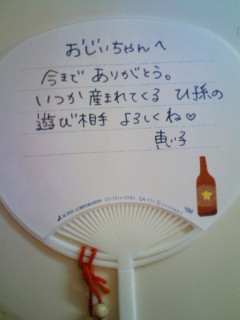 おじいちゃんへ
今まで ありがとう。
いつか 産まれてくる ひ孫の
遊び相手 よろしくね♡
恵い子